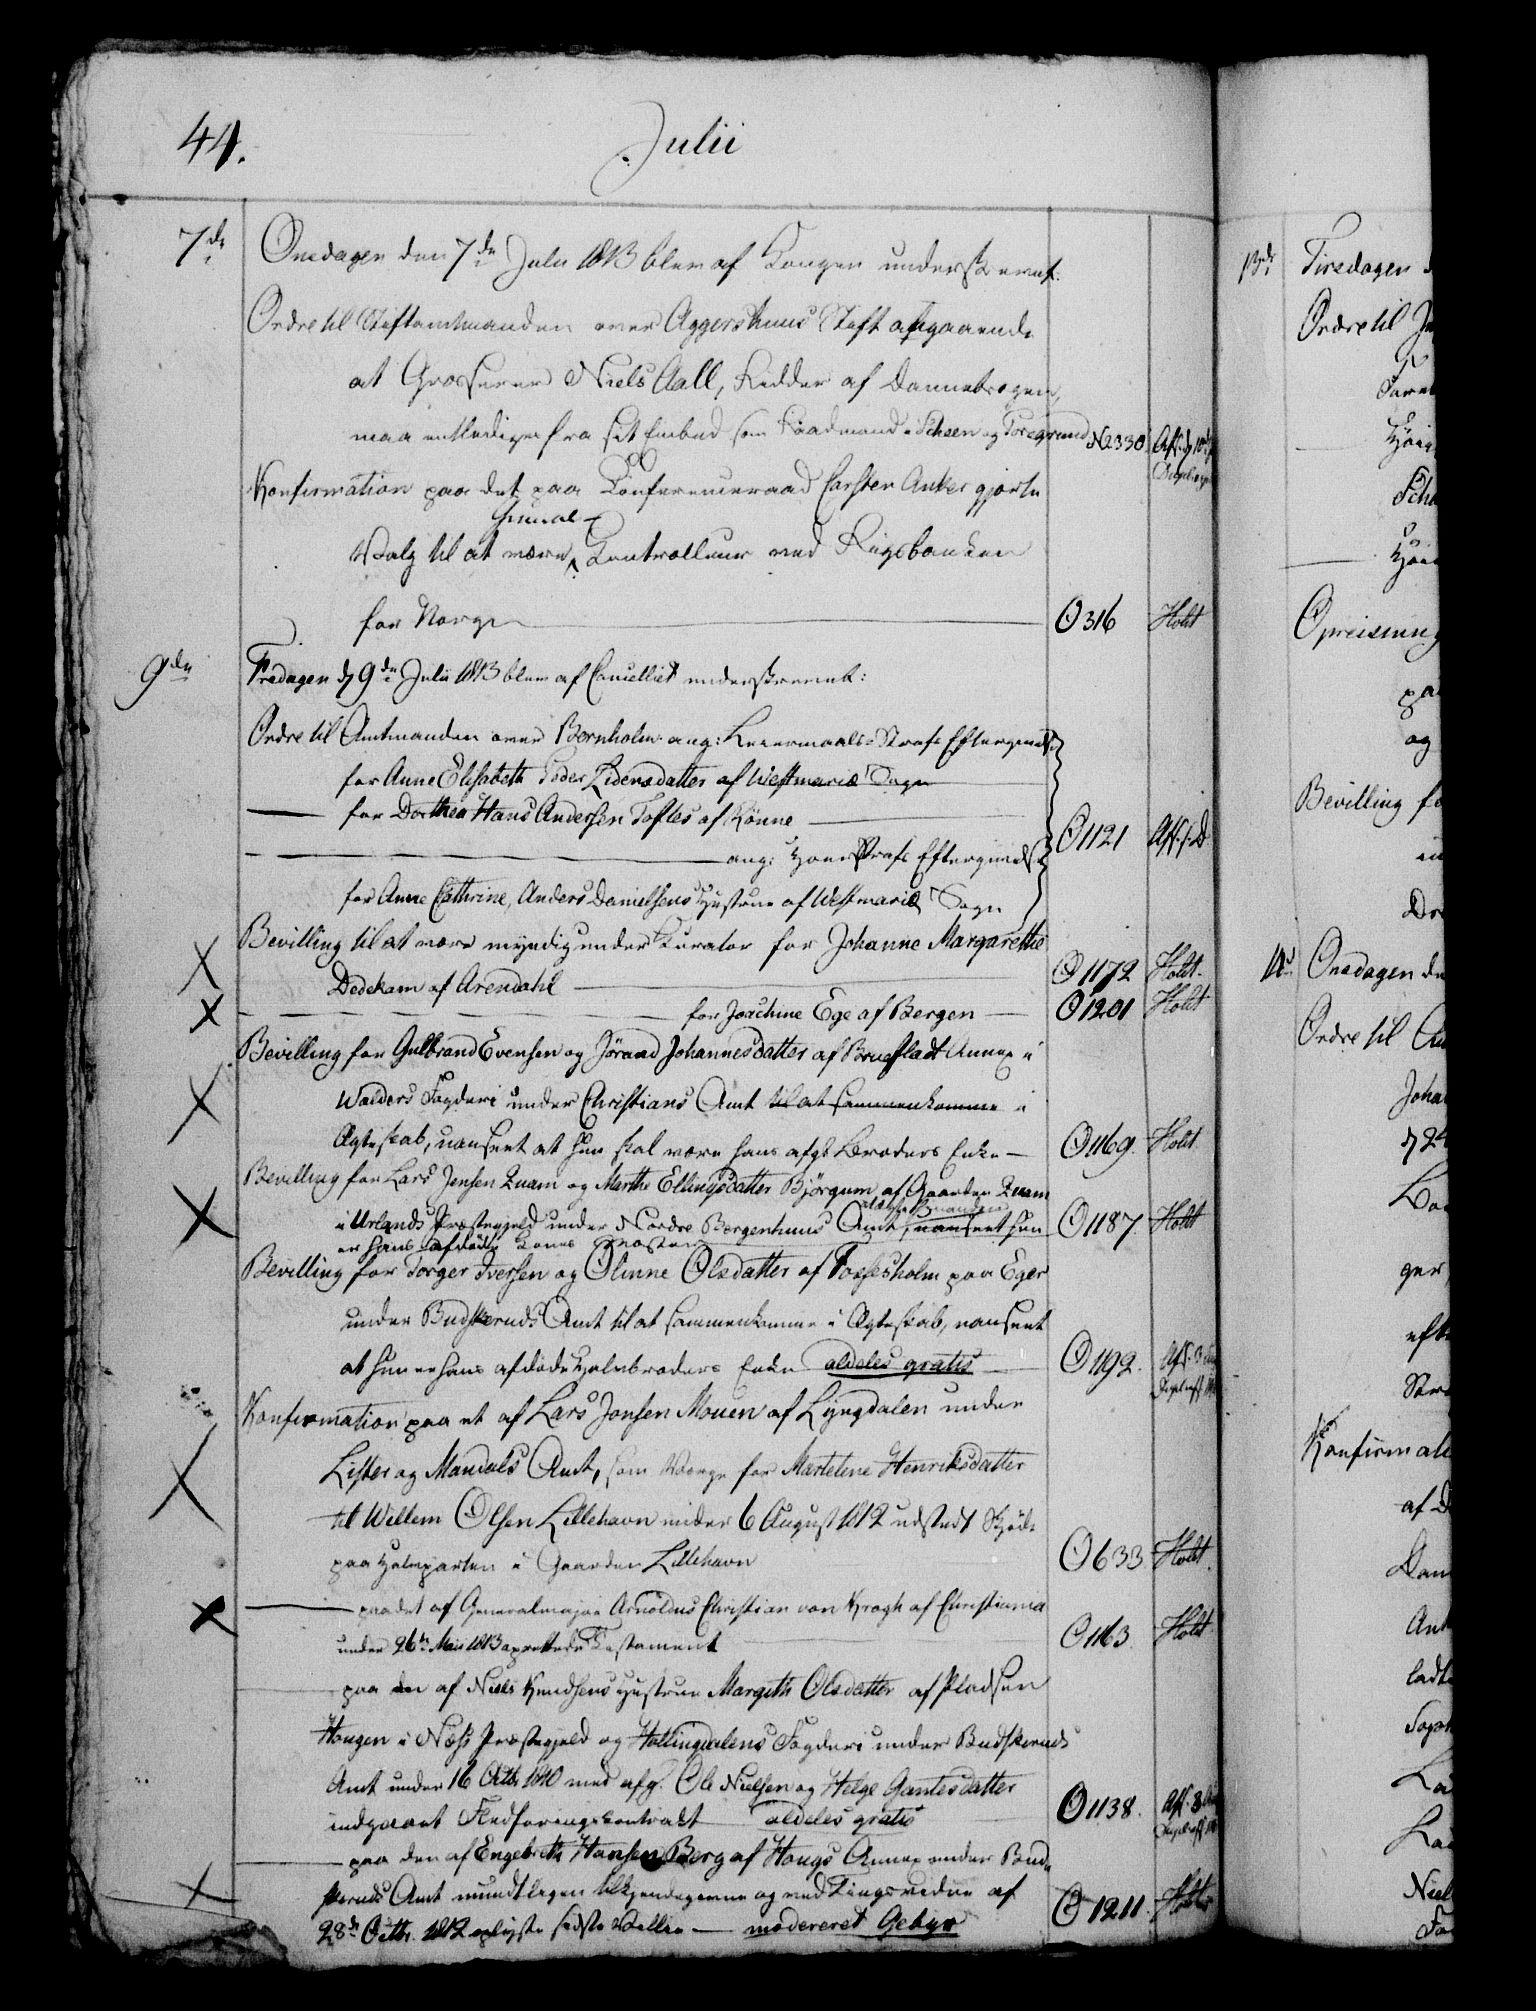 44.
Julii
7de Onsdagen den 7de Julii 1813 blev af Kongen underskrevet.
Ordre til Stiftamtmanden over Aggershuus Stift angaaende
at Grosserer Niels Aall, Ridder af Dannebrogen,
maa entlediges fra sit Embed som Raadmand i Scheen og Porsgrund N2330
Konfirmation paa det paa Conferenceraad Carsten Anker gjorte
Valg til at være Kontrolleur ved Rigsbanken
for Norge O316 Holdt
9de Fredagen d 9de Julii 1813 blev af Cancelliet underskrevet:
Ordre til Amtmanden over Bornholm ang: Leiermaals-Strafs Eftergivelse
for Anne Elisabeth Peder Lidersdatter af Westmariæ Sogn
for Dorthea Hans Andersen Toftes af Rönne
O1121
ang: Hoer Strafs Eftergivelse
for Anne Cathrine, Anders Danielsens Hustrue af Westmariæ Sogn
Bevilling til at være myndig under Kurator for Johanne Margarethe
Dedekam af Arendahl O1172 Holdt.
for Joachine Ege af Bergen O1201 Holdt
Bevilling for Gulbrand Evensen og Jöraad Johannesdatter af Bruefladt Annex i
Walders Fogderi under Christians Amt til at sammenkomme i
Ægteskab, uanseet at hun skal være hans afg: Broders Enke O1169. Holdt.
Bevilling for Lars Jensen Quam og Marthe Ellingsdatter Björgum af Gaarden Quam
i Urlands Præstegjeld under Nordre Bergenhuus Amt, uanseet hun O1187. Holdt
er hans afdöde Kones
Bevilling for Torger Iversen og Olinne Olsdatter af Fossesholm paa Eger
under Budskeruds Amt til at sammenkomme i Ægteskab, uanseet
at hun er hans afdöde Halvbroders Enke aldeles gratis O1192.
Konfirmation paa et af Lars Jonsen Mouen af Lyngdalen under
Lister og Mandals Amt, som Værge for Martelene Henriksdatter
til Willem Olsen Lillehavn under 6 August 1812 udstedt Skjöde
paa Halvparten i Gaarden Lillehavn O633 Holdt.
paa det af Generalmajor Arnoldus Christian von Krogh af Christiania
under 26de Mai 1813 oprettede Testament O1163. Holdt
paa den af Niels Knudsens Hustrue Margith Olsdatter af Pladsen
Hougen i Næss Præstegjeld og Hallingdalens Fogderi under Budskeruds
Amt under 16 Octb: 1810 med afg. Ole Nielsen og Helge Gantesdatter
indgaaet Flodföringskontrakt aldeles gratis O1138.
paa den af Engebreth Hansen Berg af Hougs Annex under Bud-
skeruds Amt mundtligen tilkjendegivne og ved Tingsvidne af
28de Octbr. 1812 oplyste sidste Villie — modereret Gebyr O1211. Holdt